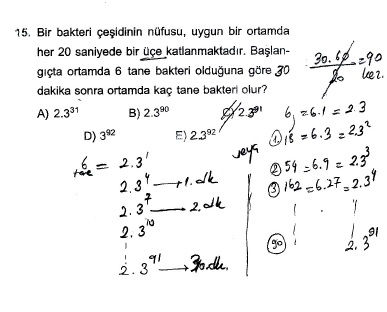 15. Bir bakteri çeşidinin nüfusu, uygun bir ortamda
her 20 saniyede bir üçe katlanmaktadır. Başlan-
gıçta ortamda 6 tane bakteri olduğuna göre 30
dakika sonra ortamda kaç tane bakteri olur?
A) 2.3³¹ B) 2.3⁹⁰ C) 2.3⁹¹
D) 3⁹² E) 2.3⁹²
30.60
20
=90
kez.
6 tane = 2.3¹
2.3⁴ → 1.dk
2.3⁷ → 2.dk
2.3¹⁰
2.3⁹¹ → 30.dk.
veya
6 = 6.1 = 2.3
1) 18 = 6.3 = 2.3²
2) 54 = 6.9 = 2.3³
3) 162 = 6.27 = 2.3⁴
90 2.3⁹¹